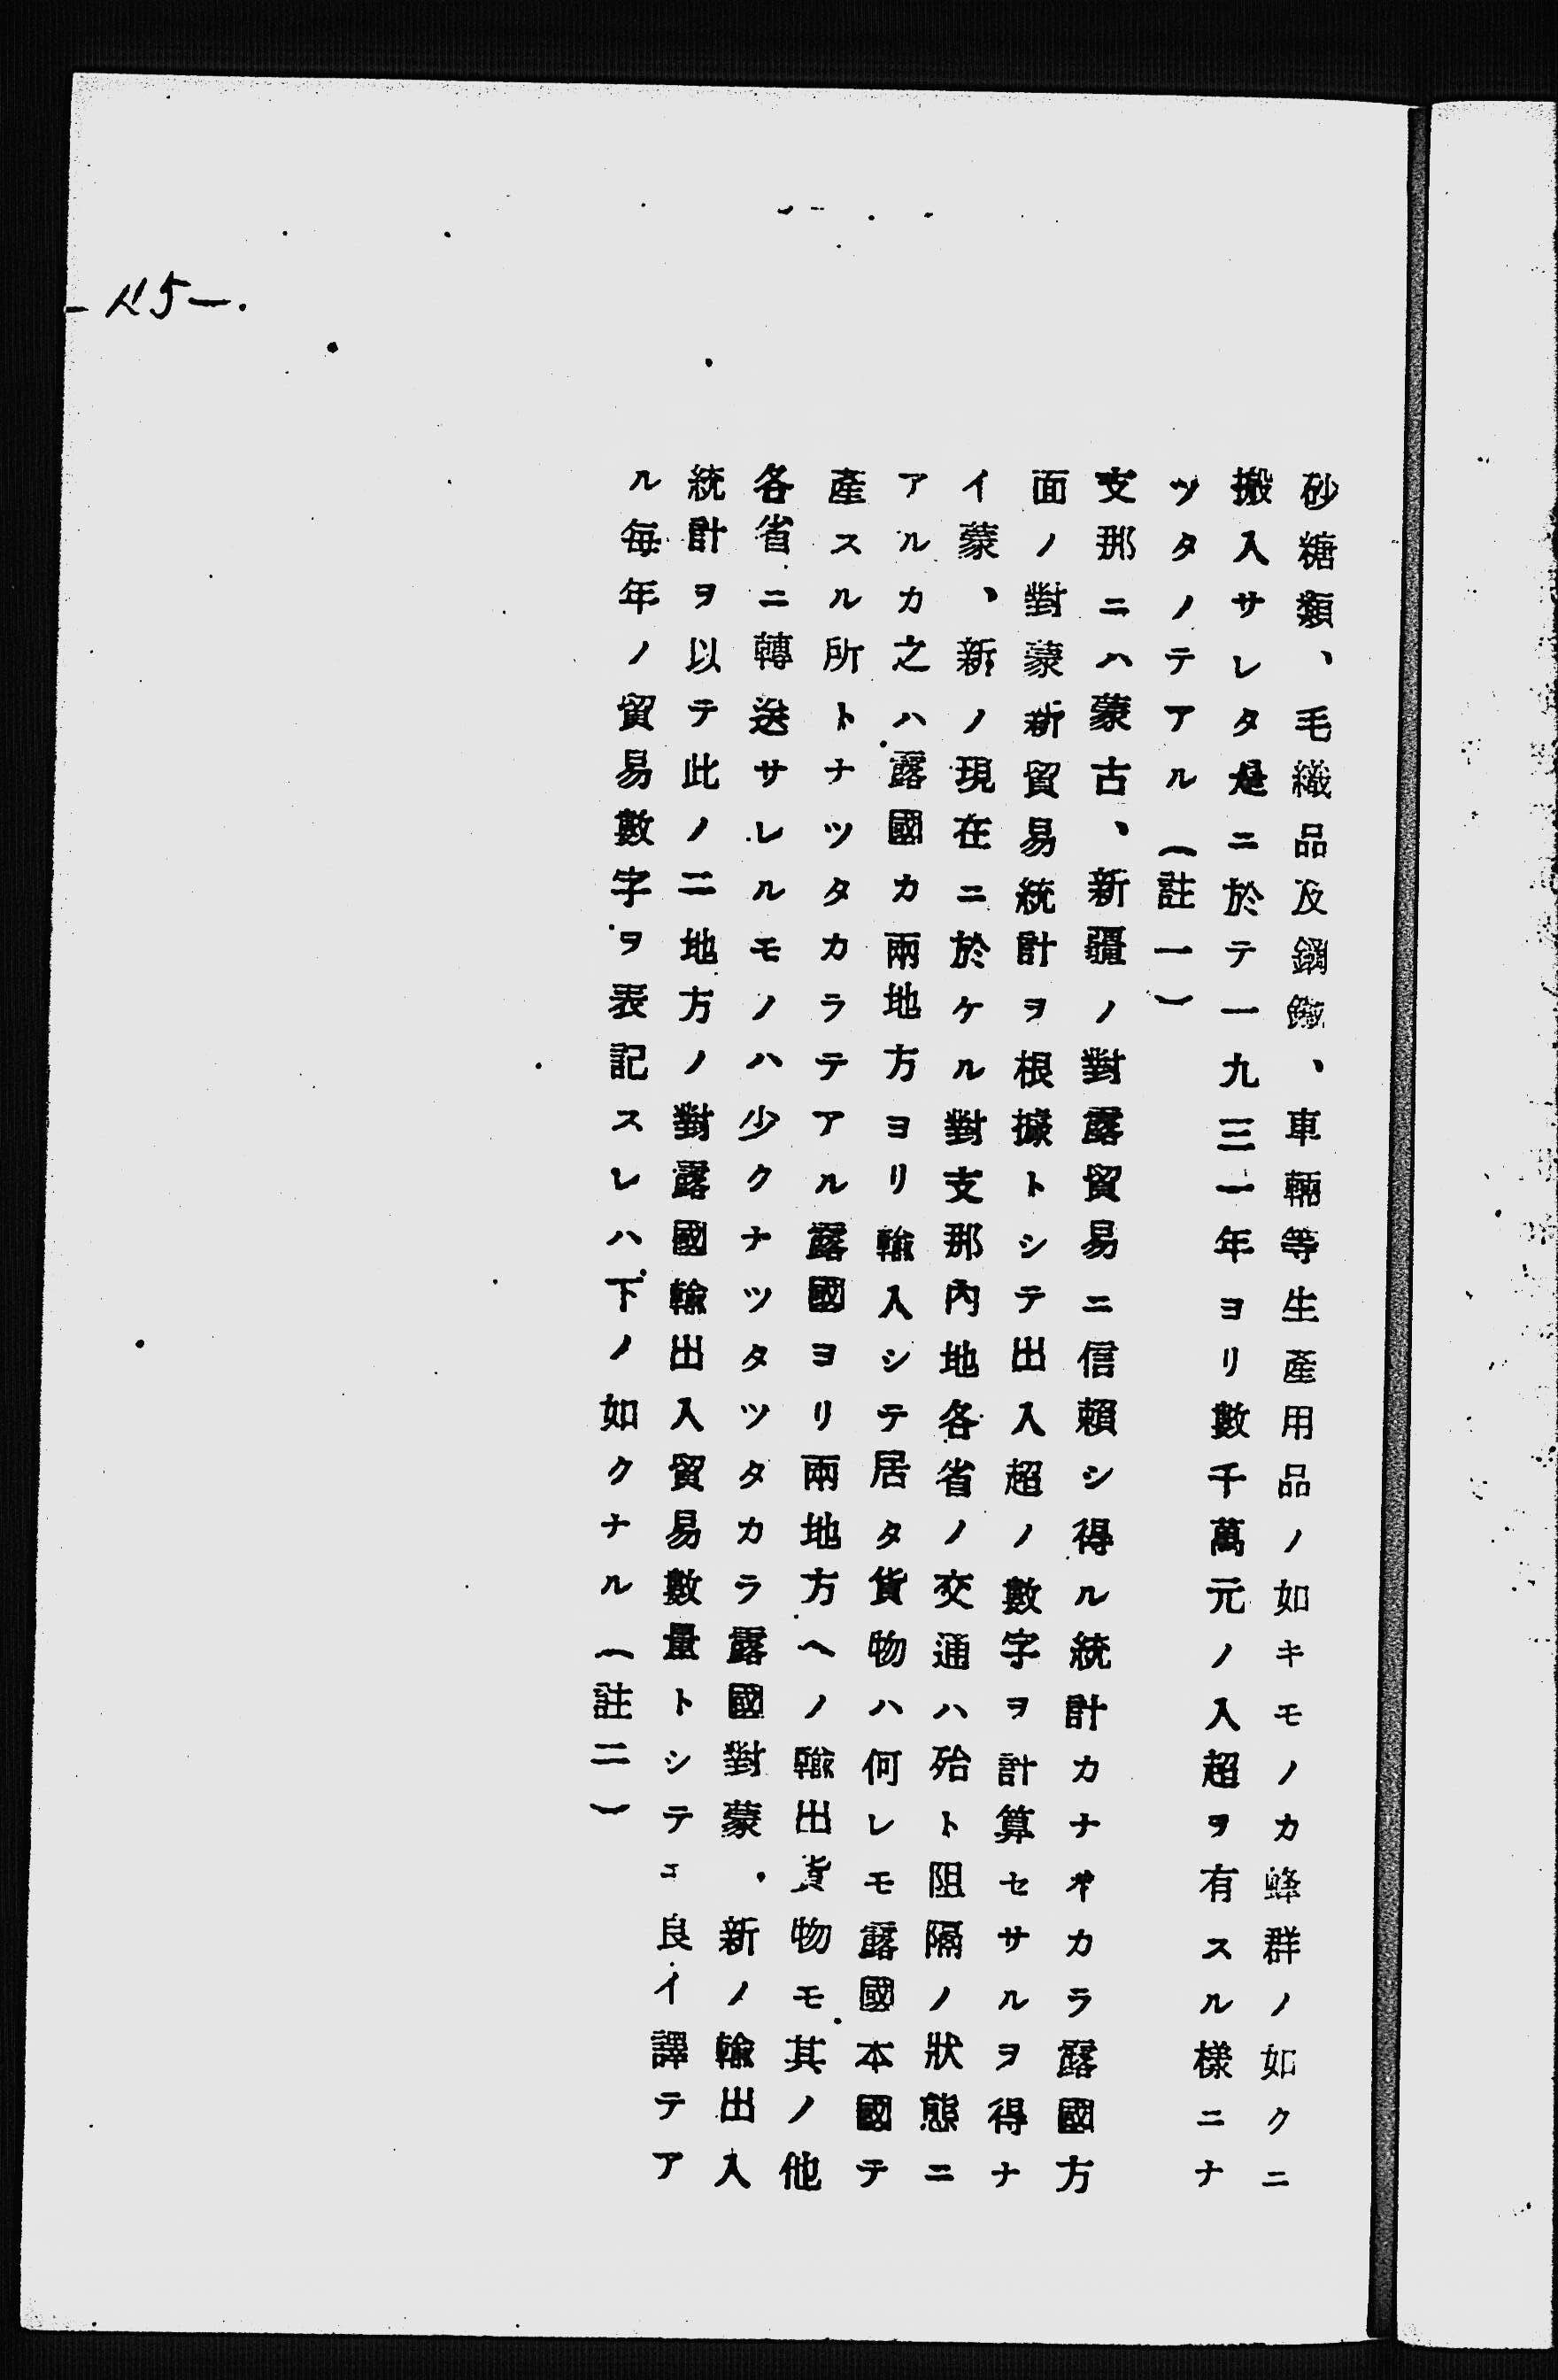 砂糖類、毛織品及鋼鐵、車輛等生產用品ノ如キモノカ蜂群ノ如クニ
搬入サレタ是ニ於テ一九三一年ヨリ數千萬元ノ入超ヲ有スル樣ニナ
ツタノテアル(註一)
支那ニハ蒙古、新疆ノ對露貿易ニ信賴シ得ル統計カナイカラ露國方
面ノ對蒙新貿易統計ヲ根據トシテ出入超ノ數字ヲ計算セサルヲ得ナ
イ蒙、新ノ現在ニ於ケル對支那內地各省ノ交通ハ殆ト阻隔ノ狀態ニ
アルカ之ハ露國カ兩地方ヨリ輸入シテ居タ貨物ハ何レモ露國本國テ
產スル所トナツタカラテアル露國ヨリ兩地方ヘノ輸出貨物モ其ノ他
各省ニ轉送サレルモノハ少クナツタツタカラ露國對蒙、新ノ輸出入
統計ヲ以テ此ノ二地方ノ對露國輸出入貿易數量トシテヱ良イ譯テア
ル每年ノ貿易數字ヲ表記スレハ下ノ如クナル(註二)
-45-.